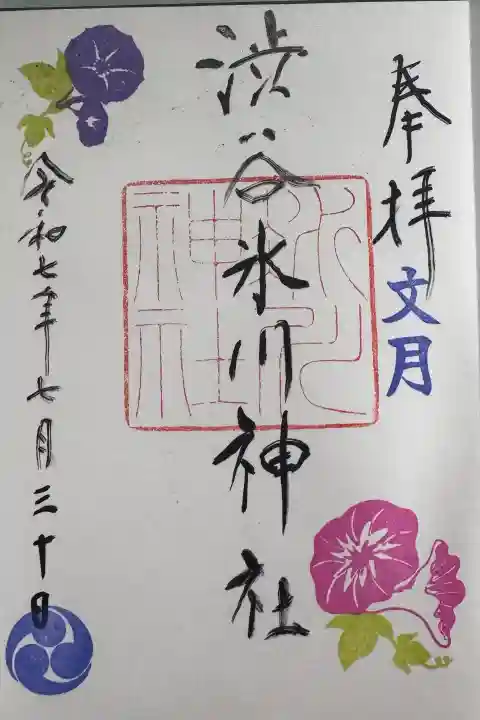 奉拝
文月
渋谷氷川神社
氷川
神社
令和七年七月三十日